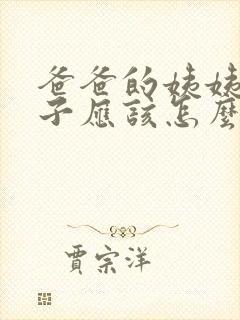 爸爸的姨姨
子應該怎麼
賈宗洋